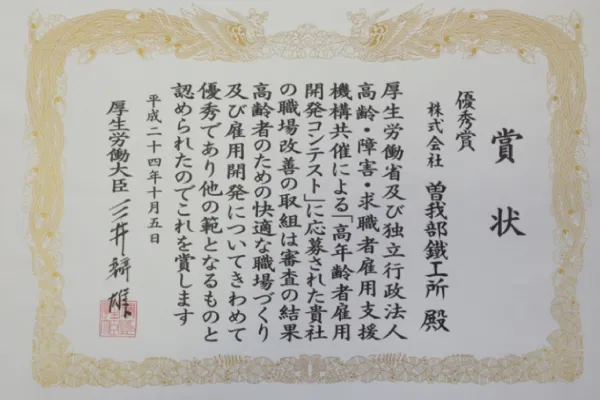 賞状
優秀賞
株式会社 曽我部鐵工所 殿
厚生労働省及び独立行政法人
高齢・障害・求職者雇用支援
機構共催による「高年齢者雇用
開発コンテスト」に応募された貴社
の職場改善の取組は審査の結果
高齢者のための快適な職場づくり
及び雇用開発についてきわめて
優秀であり他の範となるものと
認められたのでこれを賞します
平成二十四年十月五日
厚生労働大臣 三井辨雄